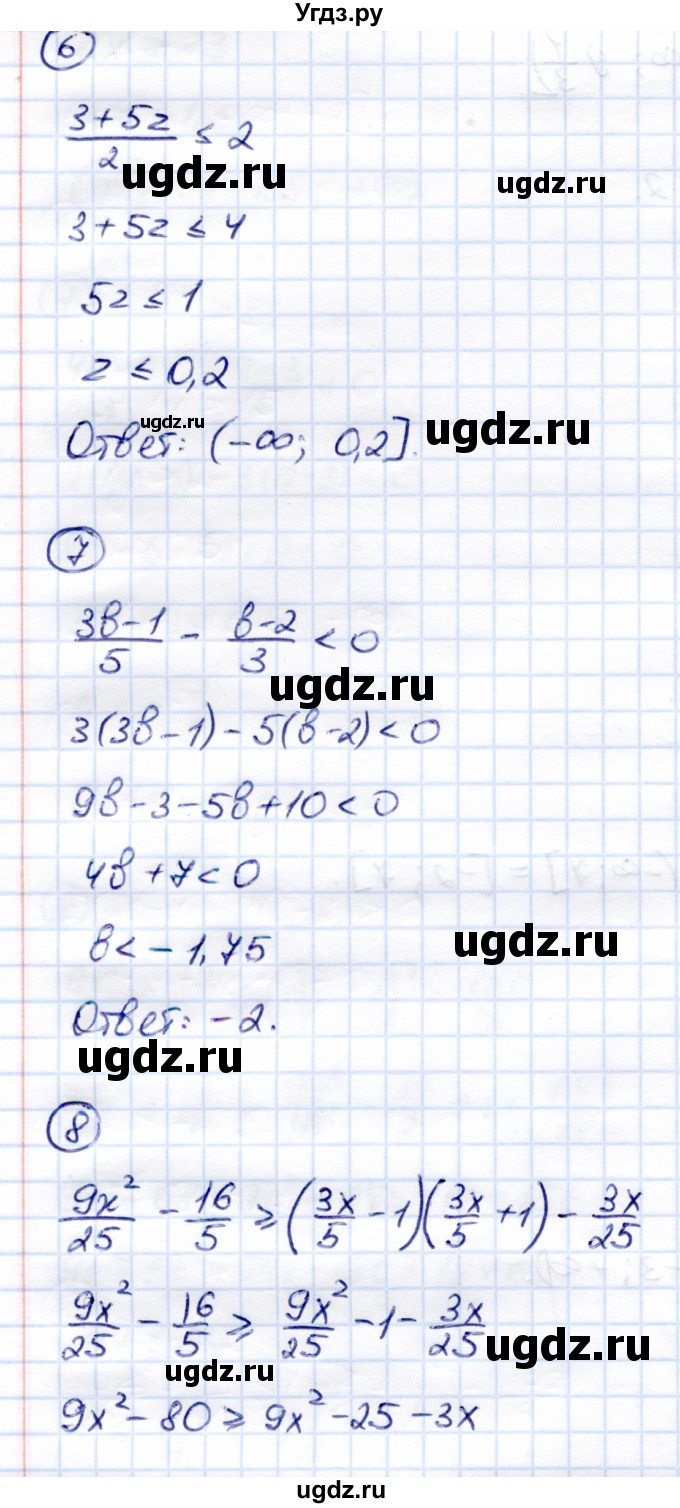 Угдз.ру
6
(3+5z)/2 ≤ 2
ugdz.ru
ugdz.ru
3+5z ≤ 4
5z ≤ 1
z ≤ 0,2
ugdz.ru
Ответ: (-∞; 0,2].
ugdz.ru
7
(3в-1)/5 - (в-2)/3 < 0
ugdz.ru
3(3в-1)-5(в-2)<0
9в-3-5в+10<0
4в+7<0
в<-1,75
ugdz.ru
Ответ: -2.
ugdz.ru
8
9x²/25 - 16/5 ≥ (3x/5 - 1)(3x/5 + 1) - 3x/25
9x²/25 - 16/5 ≥ 9x²/25 - 1 - 3x/25
ugdz.ru
ugdz.ru
9x²-80 ≥ 9x²-25-3x
ugdz.ru